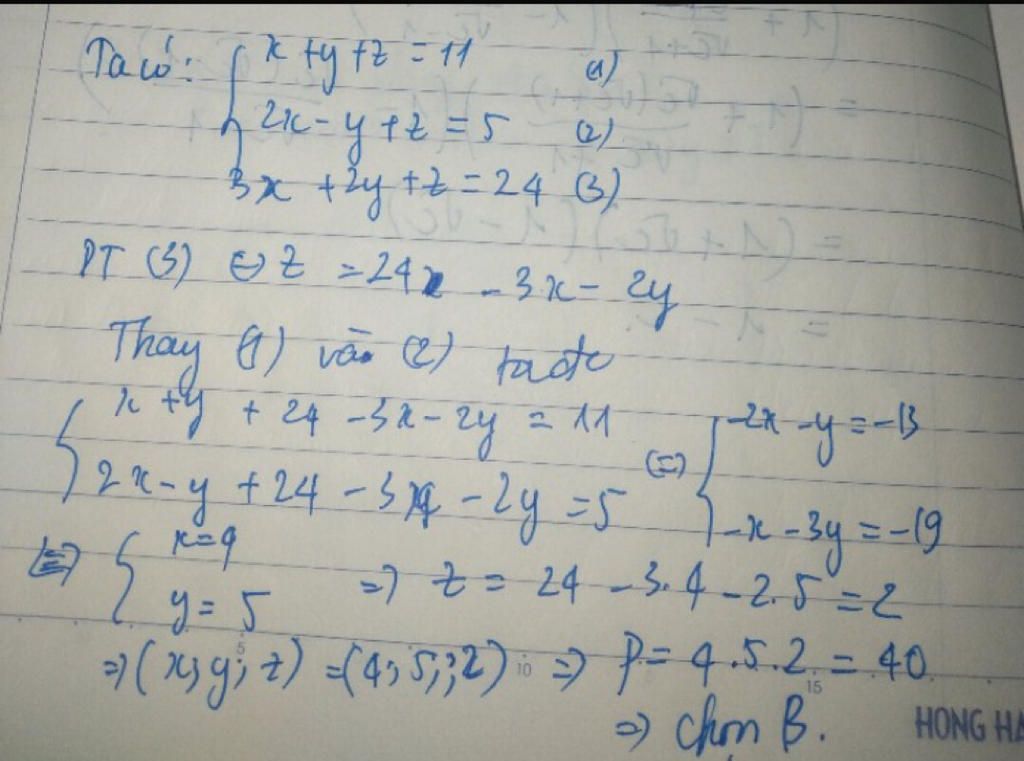 Ta có: { x + y + z = 11 (1)
2x - y + z = 5 (2)
3x + 2y + z = 24 (3)
PT (3) ⇔ z = 24 - 3x - 2y
Thay (1) vào (2) ta đc
{ x + y + 24 - 3x - 2y = 11
2x - y + 24 - 3x - 2y = 5
⇔ { -2x - y = -13
-x - 3y = -19
⇔ { x = 4
y = 5
⇒ z = 24 - 3.4 - 2.5 = 2
⇒ (x; y; z) = (4; 5; 2) ⇒ P = 4.5.2 = 40
⇒ chọn B.
5
10
15
HONG HA